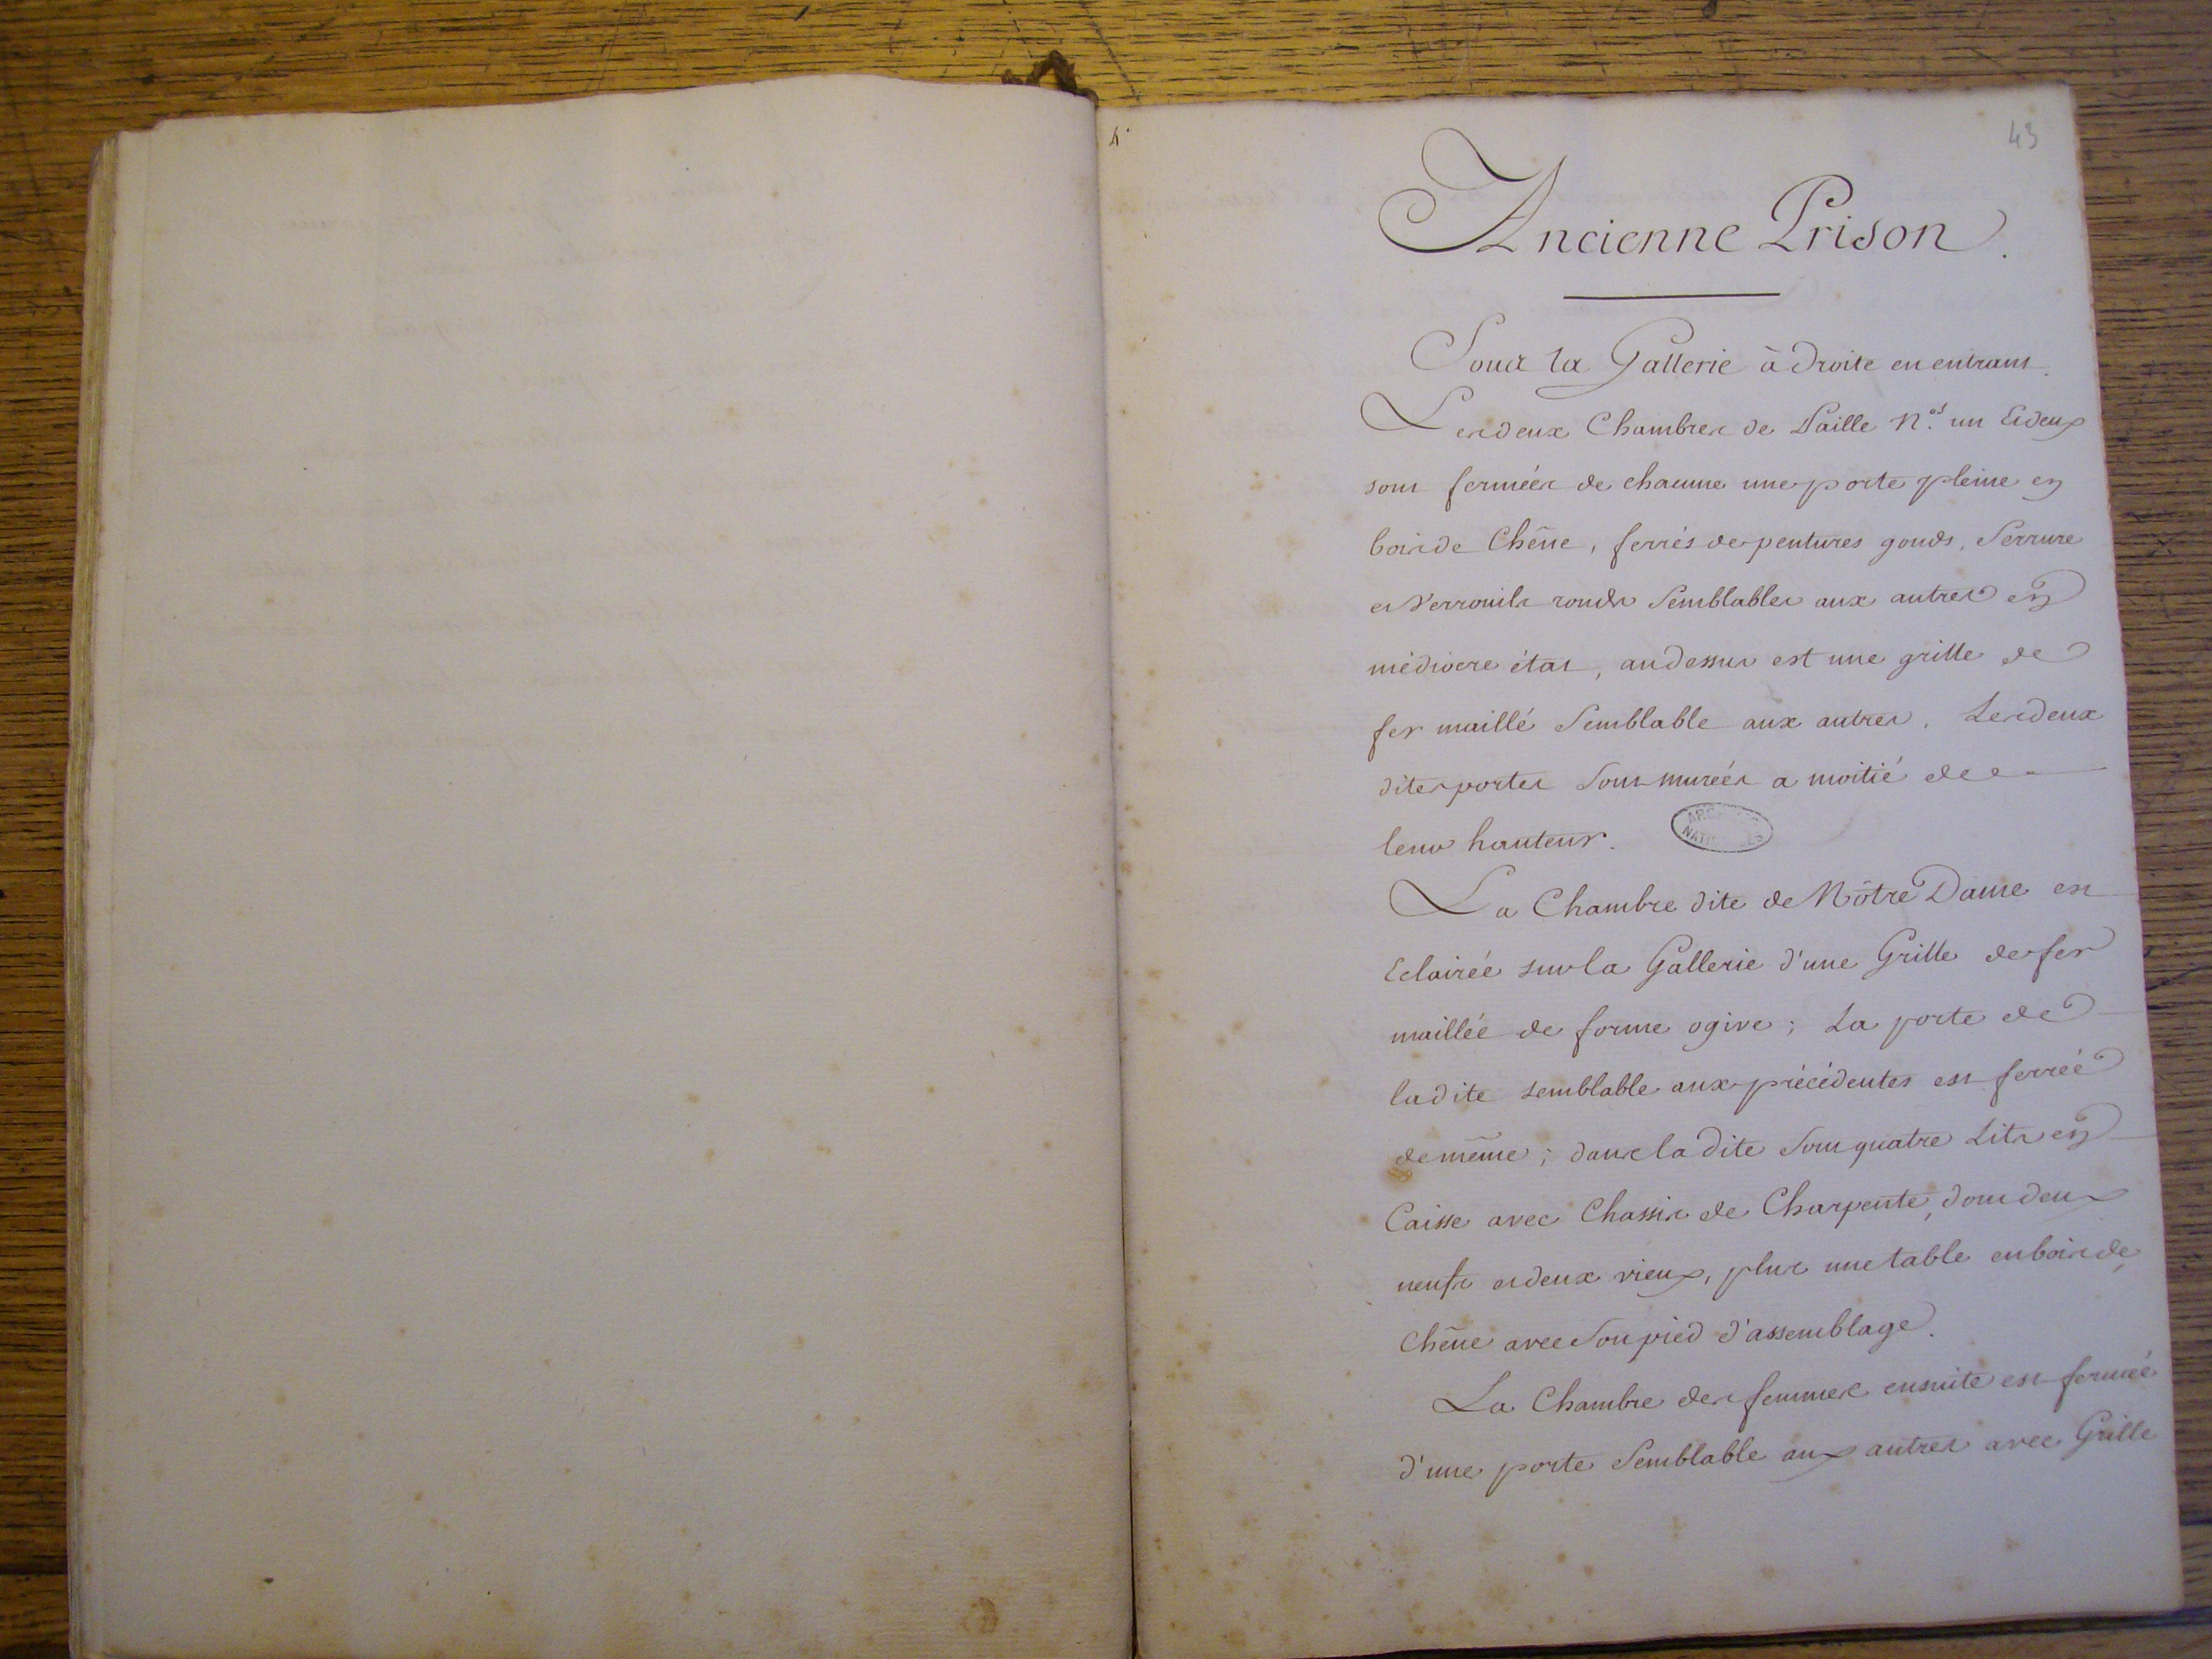 43
Ancienne Prison.
Sous la Gallerie à droite en entrant.
Les deux Chambres de Paille N.os un Et deux
sont fermées de chacune une porte pleine en
bois de Chêne, ferrés de pentures gonds, Serrure
et Verrouils ronds Semblables aux autres en
médiocre état, au dessus est une grille de
fer maillé Semblable aux autres. Les deux
dites portes Sont murées a moitié de
leur hauteur.
ARCHIVES
NATIONALES
La Chambre dite de Nôtre Dame est
Eclairée sur la Gallerie d'une Grille de fer
maillée de forme ogive; La porte de
la dite semblable aux précédentes est ferrée
de même; dans la dite Sont quatre Lits en
Caisse avec Chassis de Charpente, dont deux
neufs et deux vieux, plus une table en bois de
Chêne avec Son pied d'assemblage.
La Chambre des femmes ensuite est fermée
d'une porte Semblable aux autres avec Grille